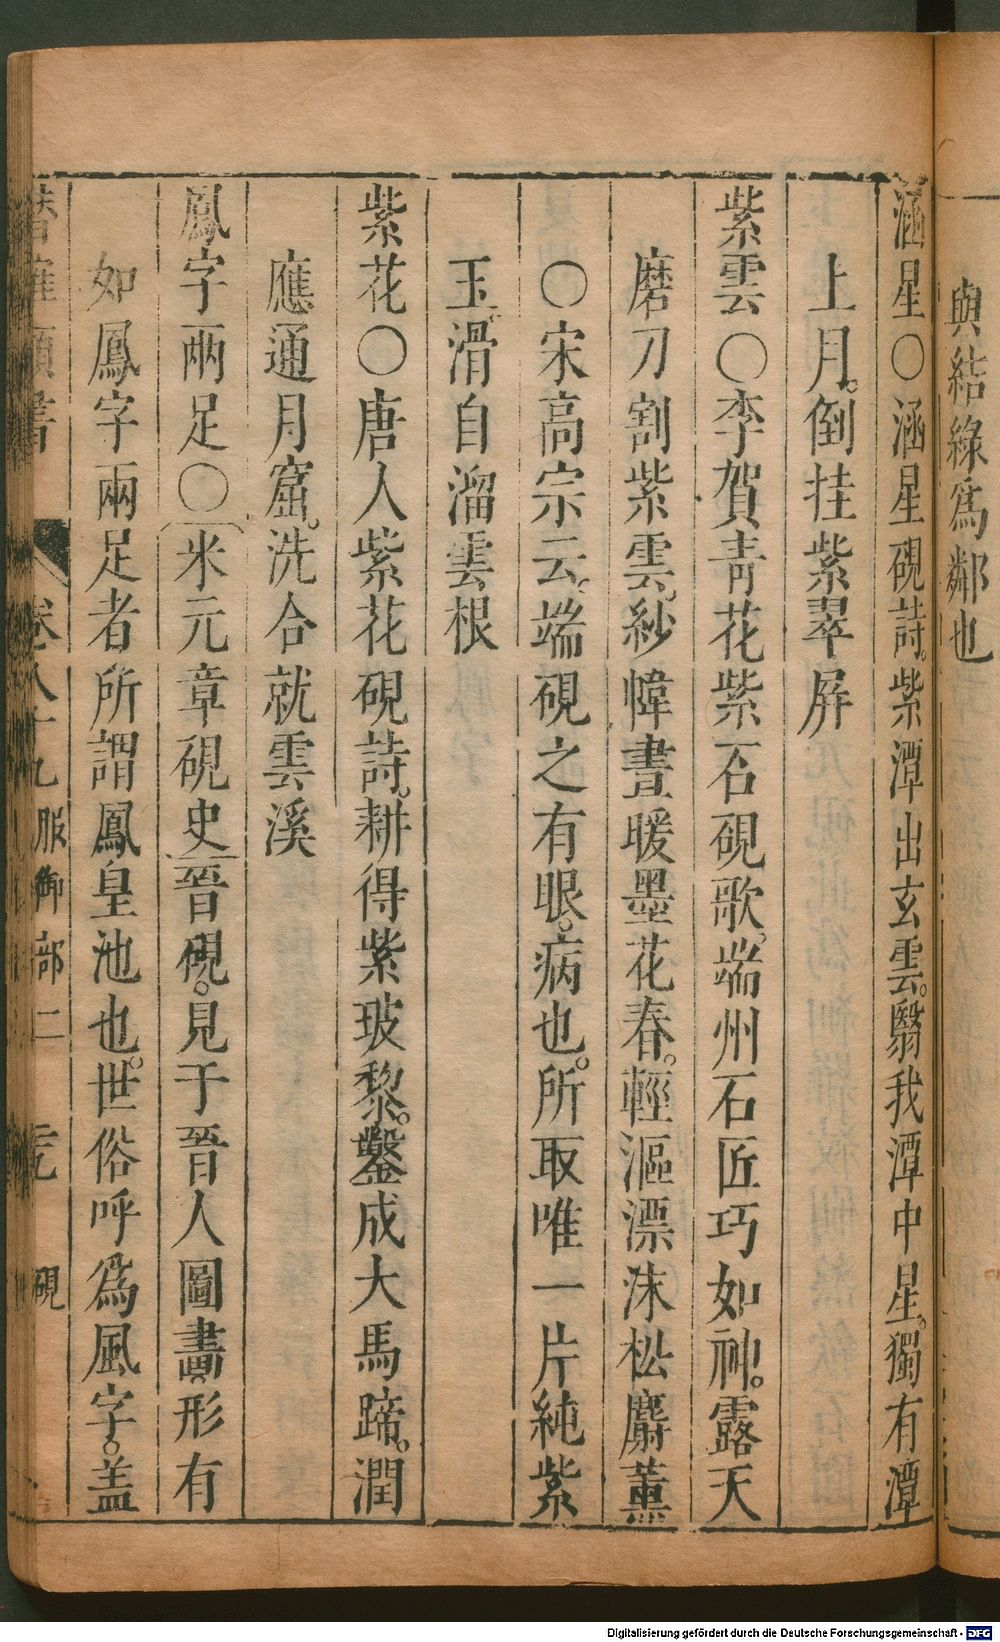 與結綠爲鄰也
涵星〇涵星硯詩。紫潭出玄雲。翳我潭中星。獨有潭
上月。倒挂紫翠屏
紫雲〇李賀青花紫石硯歌。端州石匠巧如神。露天
磨刀割紫雲。紗幃晝暖墨花春。輕漚漂沫松麝薰
〇宋高宗云。端硯之有眼。病也。所取唯一片純紫
玉。滑自溜雲根
紫花〇唐人紫花硯詩。耕得紫玻黎。鑿成大馬蹄。潤
應通月窟。洗合就雲溪
鳳字兩足〇米元章硯史晉硯。見于晉人圖畫。形有
如鳳字兩足者所謂鳳皇池也。世俗呼爲風字。盖
卷八十九 服御部二 硯
Digitalisierung gefördert durch die Deutsche Forschungsgemeinschaft - DFG